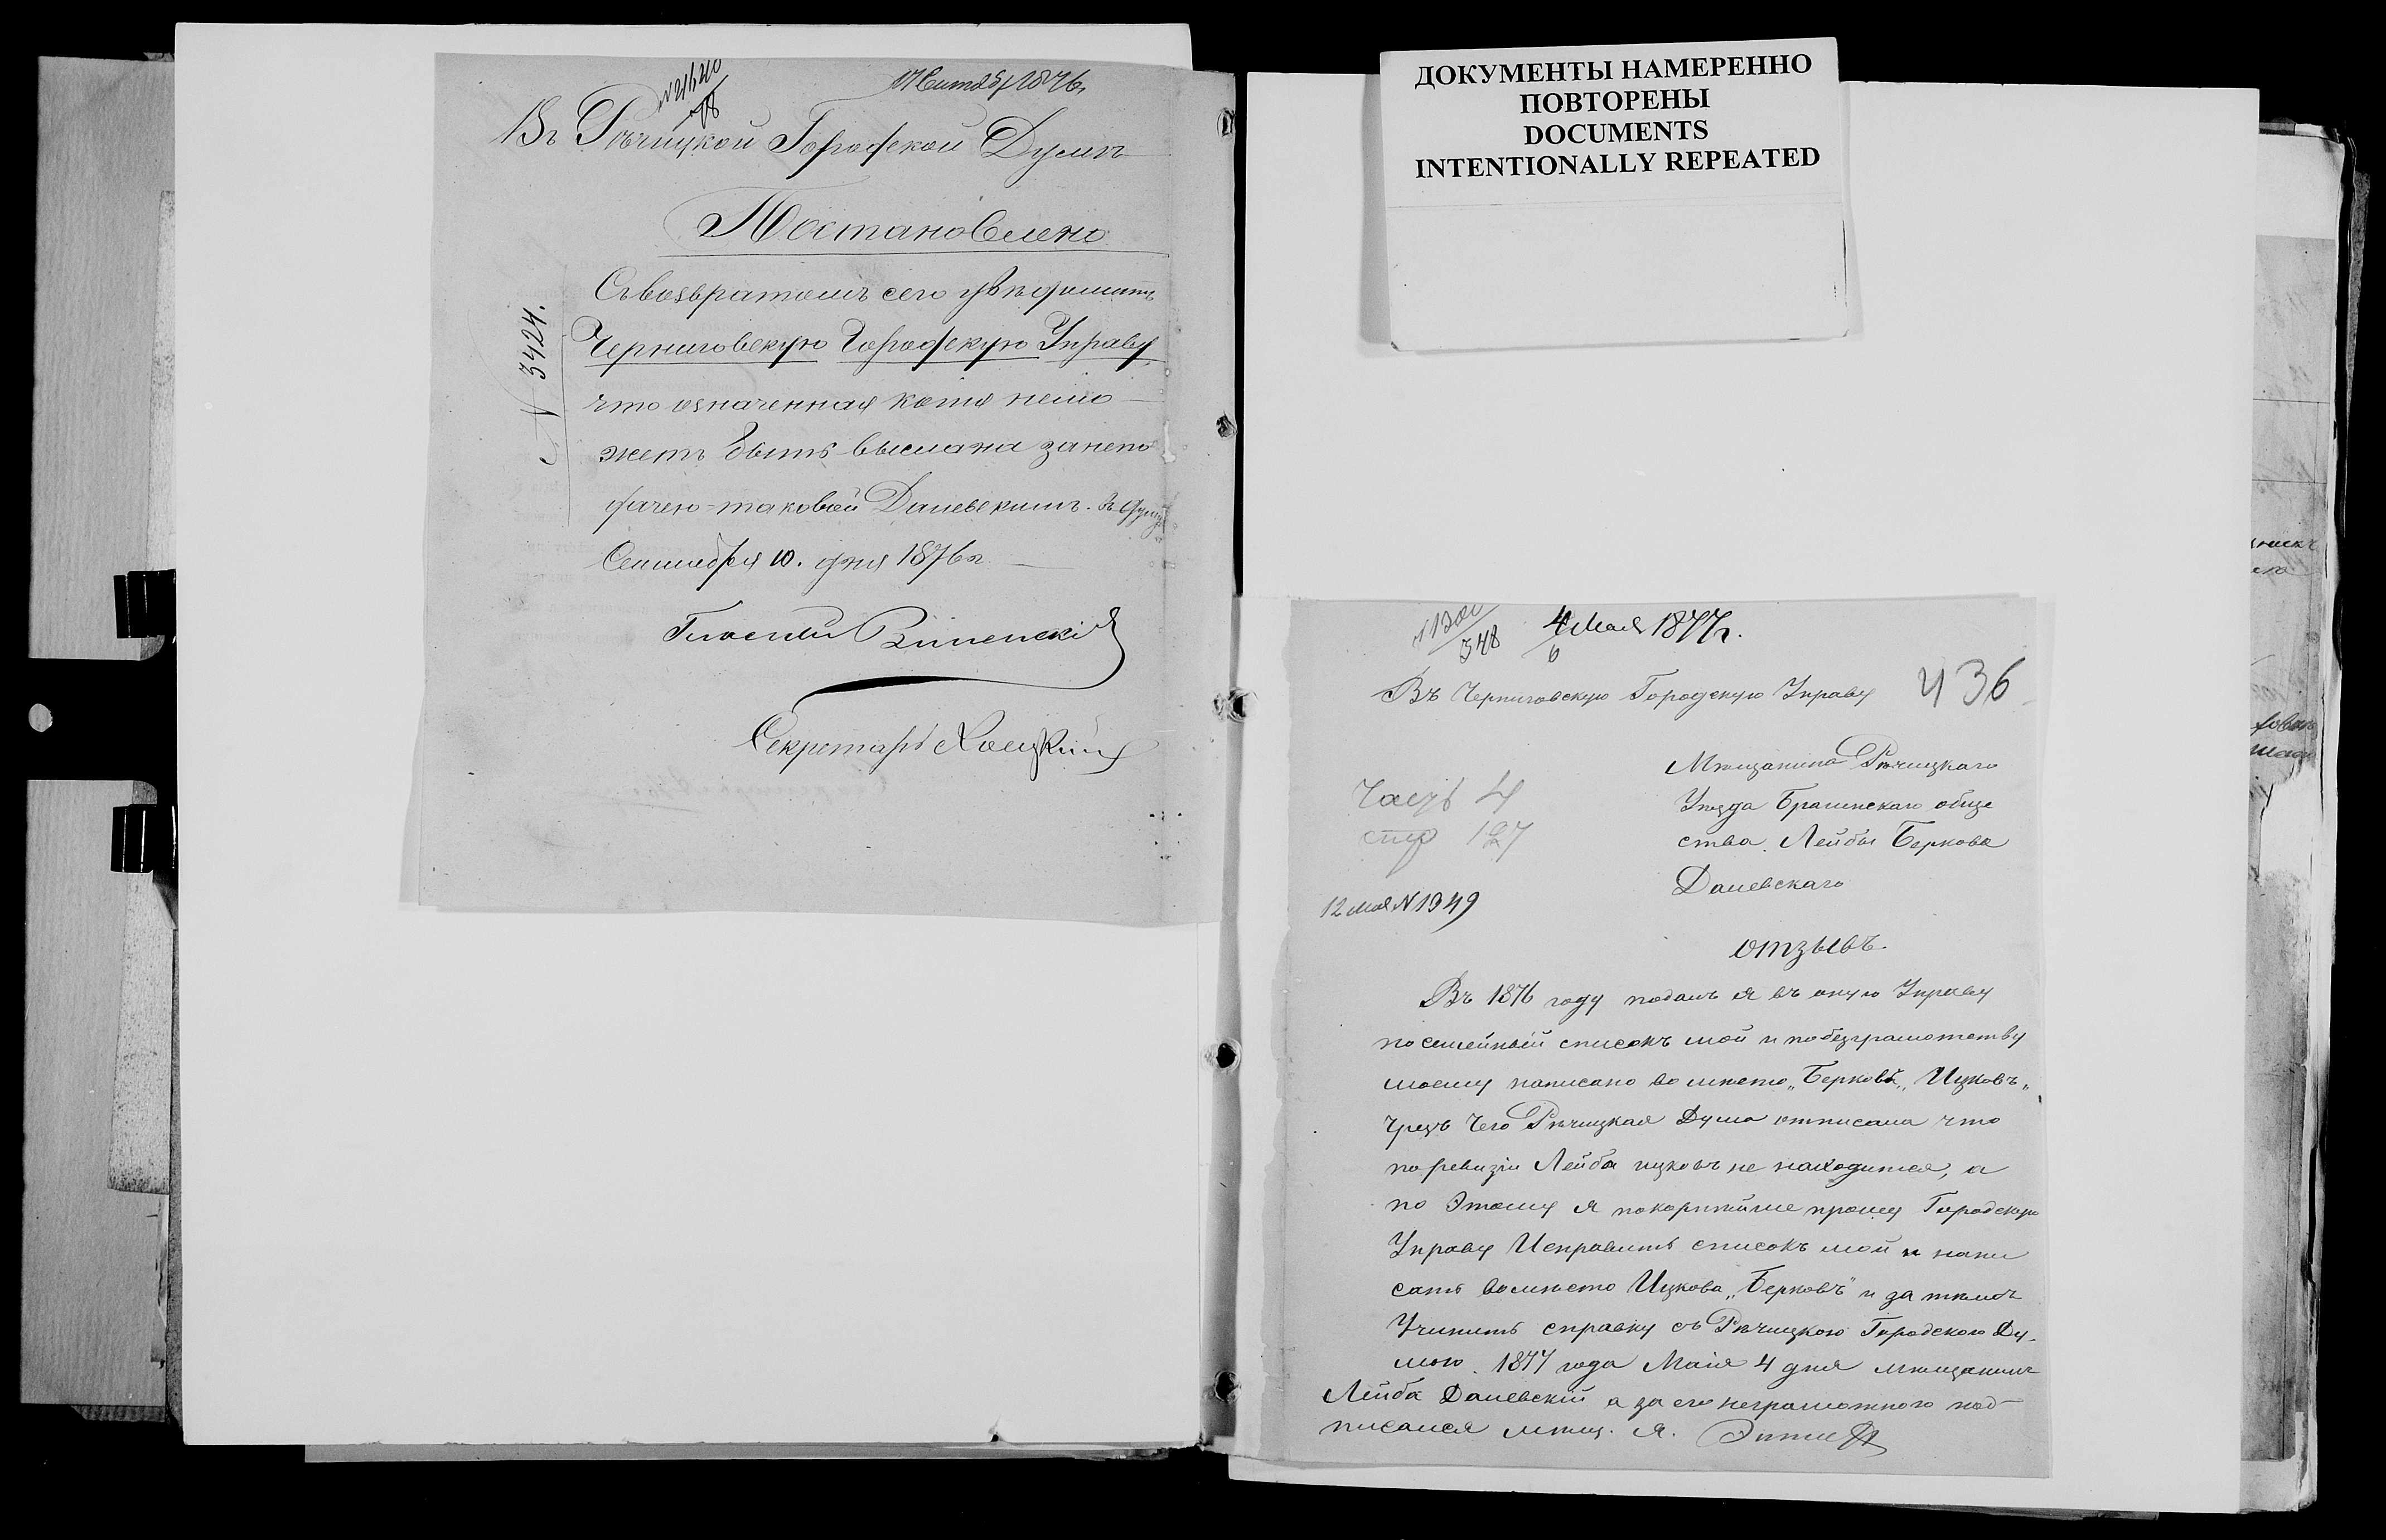 17 Сентяб 1876,
Въ Рѣчицкой Городской Думѣ
Постановлено
№ 3424.
Съ возвратомъ сего увѣдомить
Черниговскую Городскую Управу
что означенная копія немо
жетъ быть выслана занепо
дачею таковой Даневскимъ.
Сентября 10. дня 1876 г.
Гласный
Секретарь
ДОКУМЕНТЫ НАМЕРЕННО
ПОВТОРЕНЫ
DOCUMENTS
INTENTIONALLY REPEATED
348
4 Мая 1877 г.
6
Въ Черниговскую Городскую Управу
436
Мѣщанина Рѣчицкаго
Уѣзда Брагинскаго обще
ства. Лейбы Беркова
Даневскаго
Часть 4
стр 127
12 мая № 1949
отзывъ.
Въ 1876 году подалъ я въ оную Управу
посемейный списокъ мой и по безграмотству
моему написано во мѣсто „Берковъ„ Ицковъ„
чрезъ чего Рѣчицкая Дума отписала что
по ревизіи Лейба ицковъ не находится, а
по Этому я покорнѣйше прошу Городскую
Управу Исправить списокъ мой и напи
сать вомѣсто Ицкова „Берковъ" и за тѣмъ
Учинить справку съ Рѣчицкою Городскою Ду-
мою. 1877 года Маія 4 дня мѣщанинъ
Лейба Даневскій а за его неграмотного под-
писался мѣщ. Я.